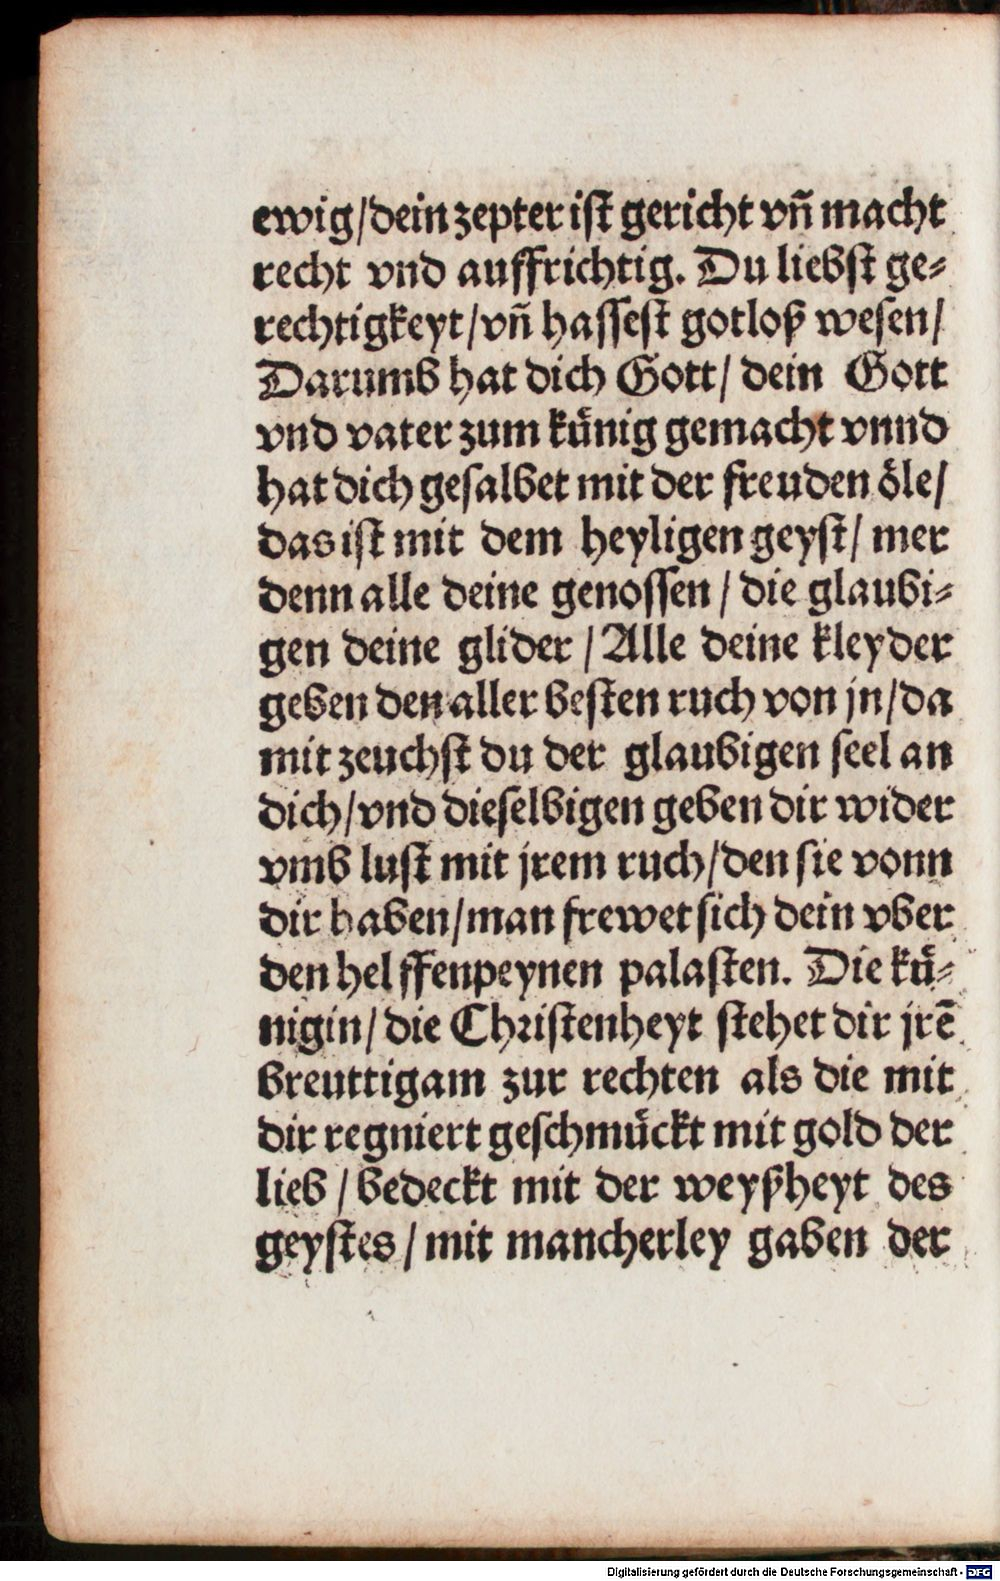 ewig/dein zepter ist gericht vñ macht
recht vnd auffrichtig. Du liebst ge⸗
rechtigkeyt/vñ hassest gotloß wesen/
Darumb hat dich Gott/ dein Gott
vnd vater zum künig gemacht vnnd
hat dich gesalbet mit der freuden öle/
das ist mit dem heyligen geyst/ mer
denn alle deine genossen / die glaubi⸗
gen deine glider / Alle deine kleyder
geben den aller besten ruch von jn/da
mit zeuchst du der glaubigen seel an
dich/vnd dieselbigen geben dir wider
vmb lust mit jrem ruch/den sie vonn
dir haben/man frewet sich dein vber
den helffenpeynen palasten. Die kü⸗
nigin/ die Christenheyt stehet dir jrē
breuttigam zur rechten als die mit
dir regniert geschmückt mit gold der
lieb / bedeckt mit der weyßheyt des
geystes / mit mancherley gaben der
Digitalisierung gefördert durch die Deutsche Forschungsgemeinschaft - DFG